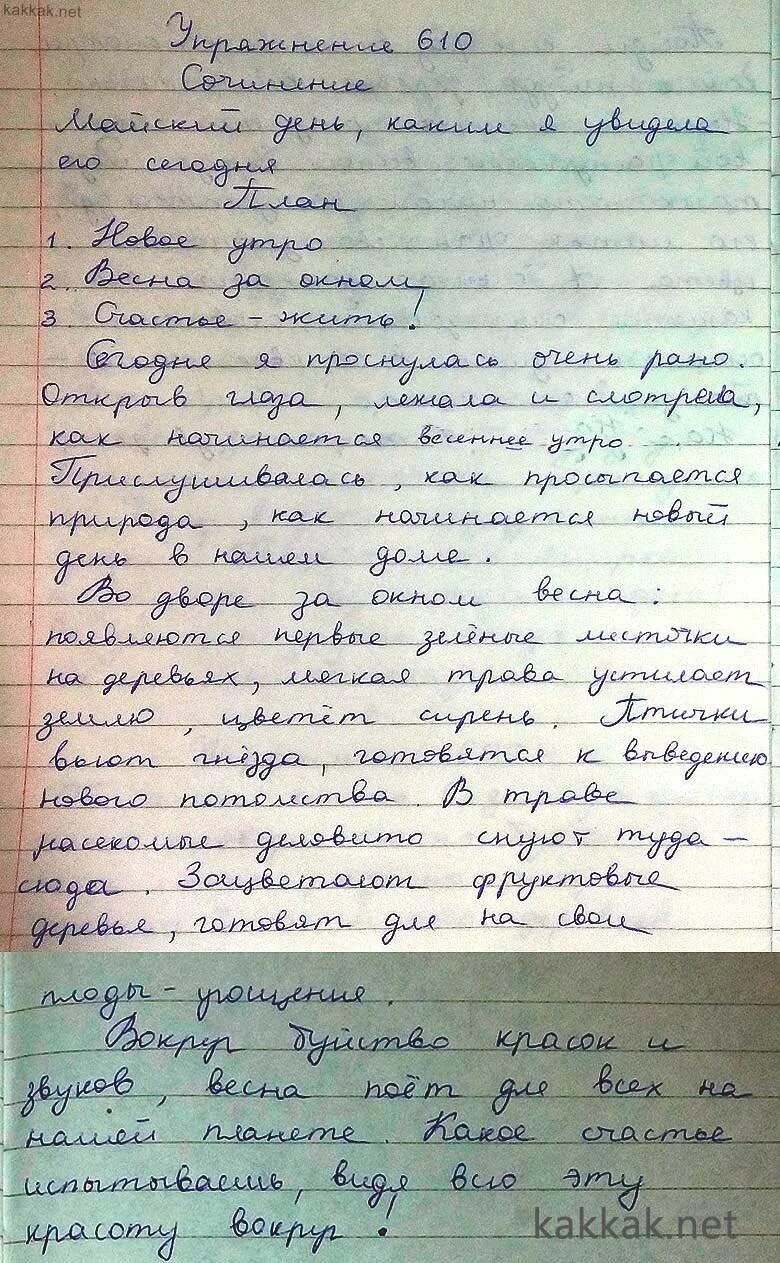 kakkak.net
Упражнение 610
Сочинение
Майский день, каким я увидела
его сегодня
План
1. Новое утро
2. Весна за окном
3. Счастье - жить!
Сегодня я проснулась очень рано.
Открыв глаза, лежала и смотрела,
как начинается весеннее утро.
Прислушивалась, как просыпается
природа, как начинается новый
день в нашем доме.
Во дворе за окном весна:
появляются первые зелёные листочки
на деревьях, мягкая трава устилает
землю, цветёт сирень. Птички
вьют гнёзда, готовятся к выведению
нового потомства. В траве
насекомые деловито снуют туда -
сюда. Зацветают фруктовые
деревья, готовят для нас свои
плоды - угощения.
Вокруг буйство красок и
звуков, весна поёт для всех на
нашей планете. Какое счастье
испытываешь, видя всю эту
красоту вокруг!
kakkak.net